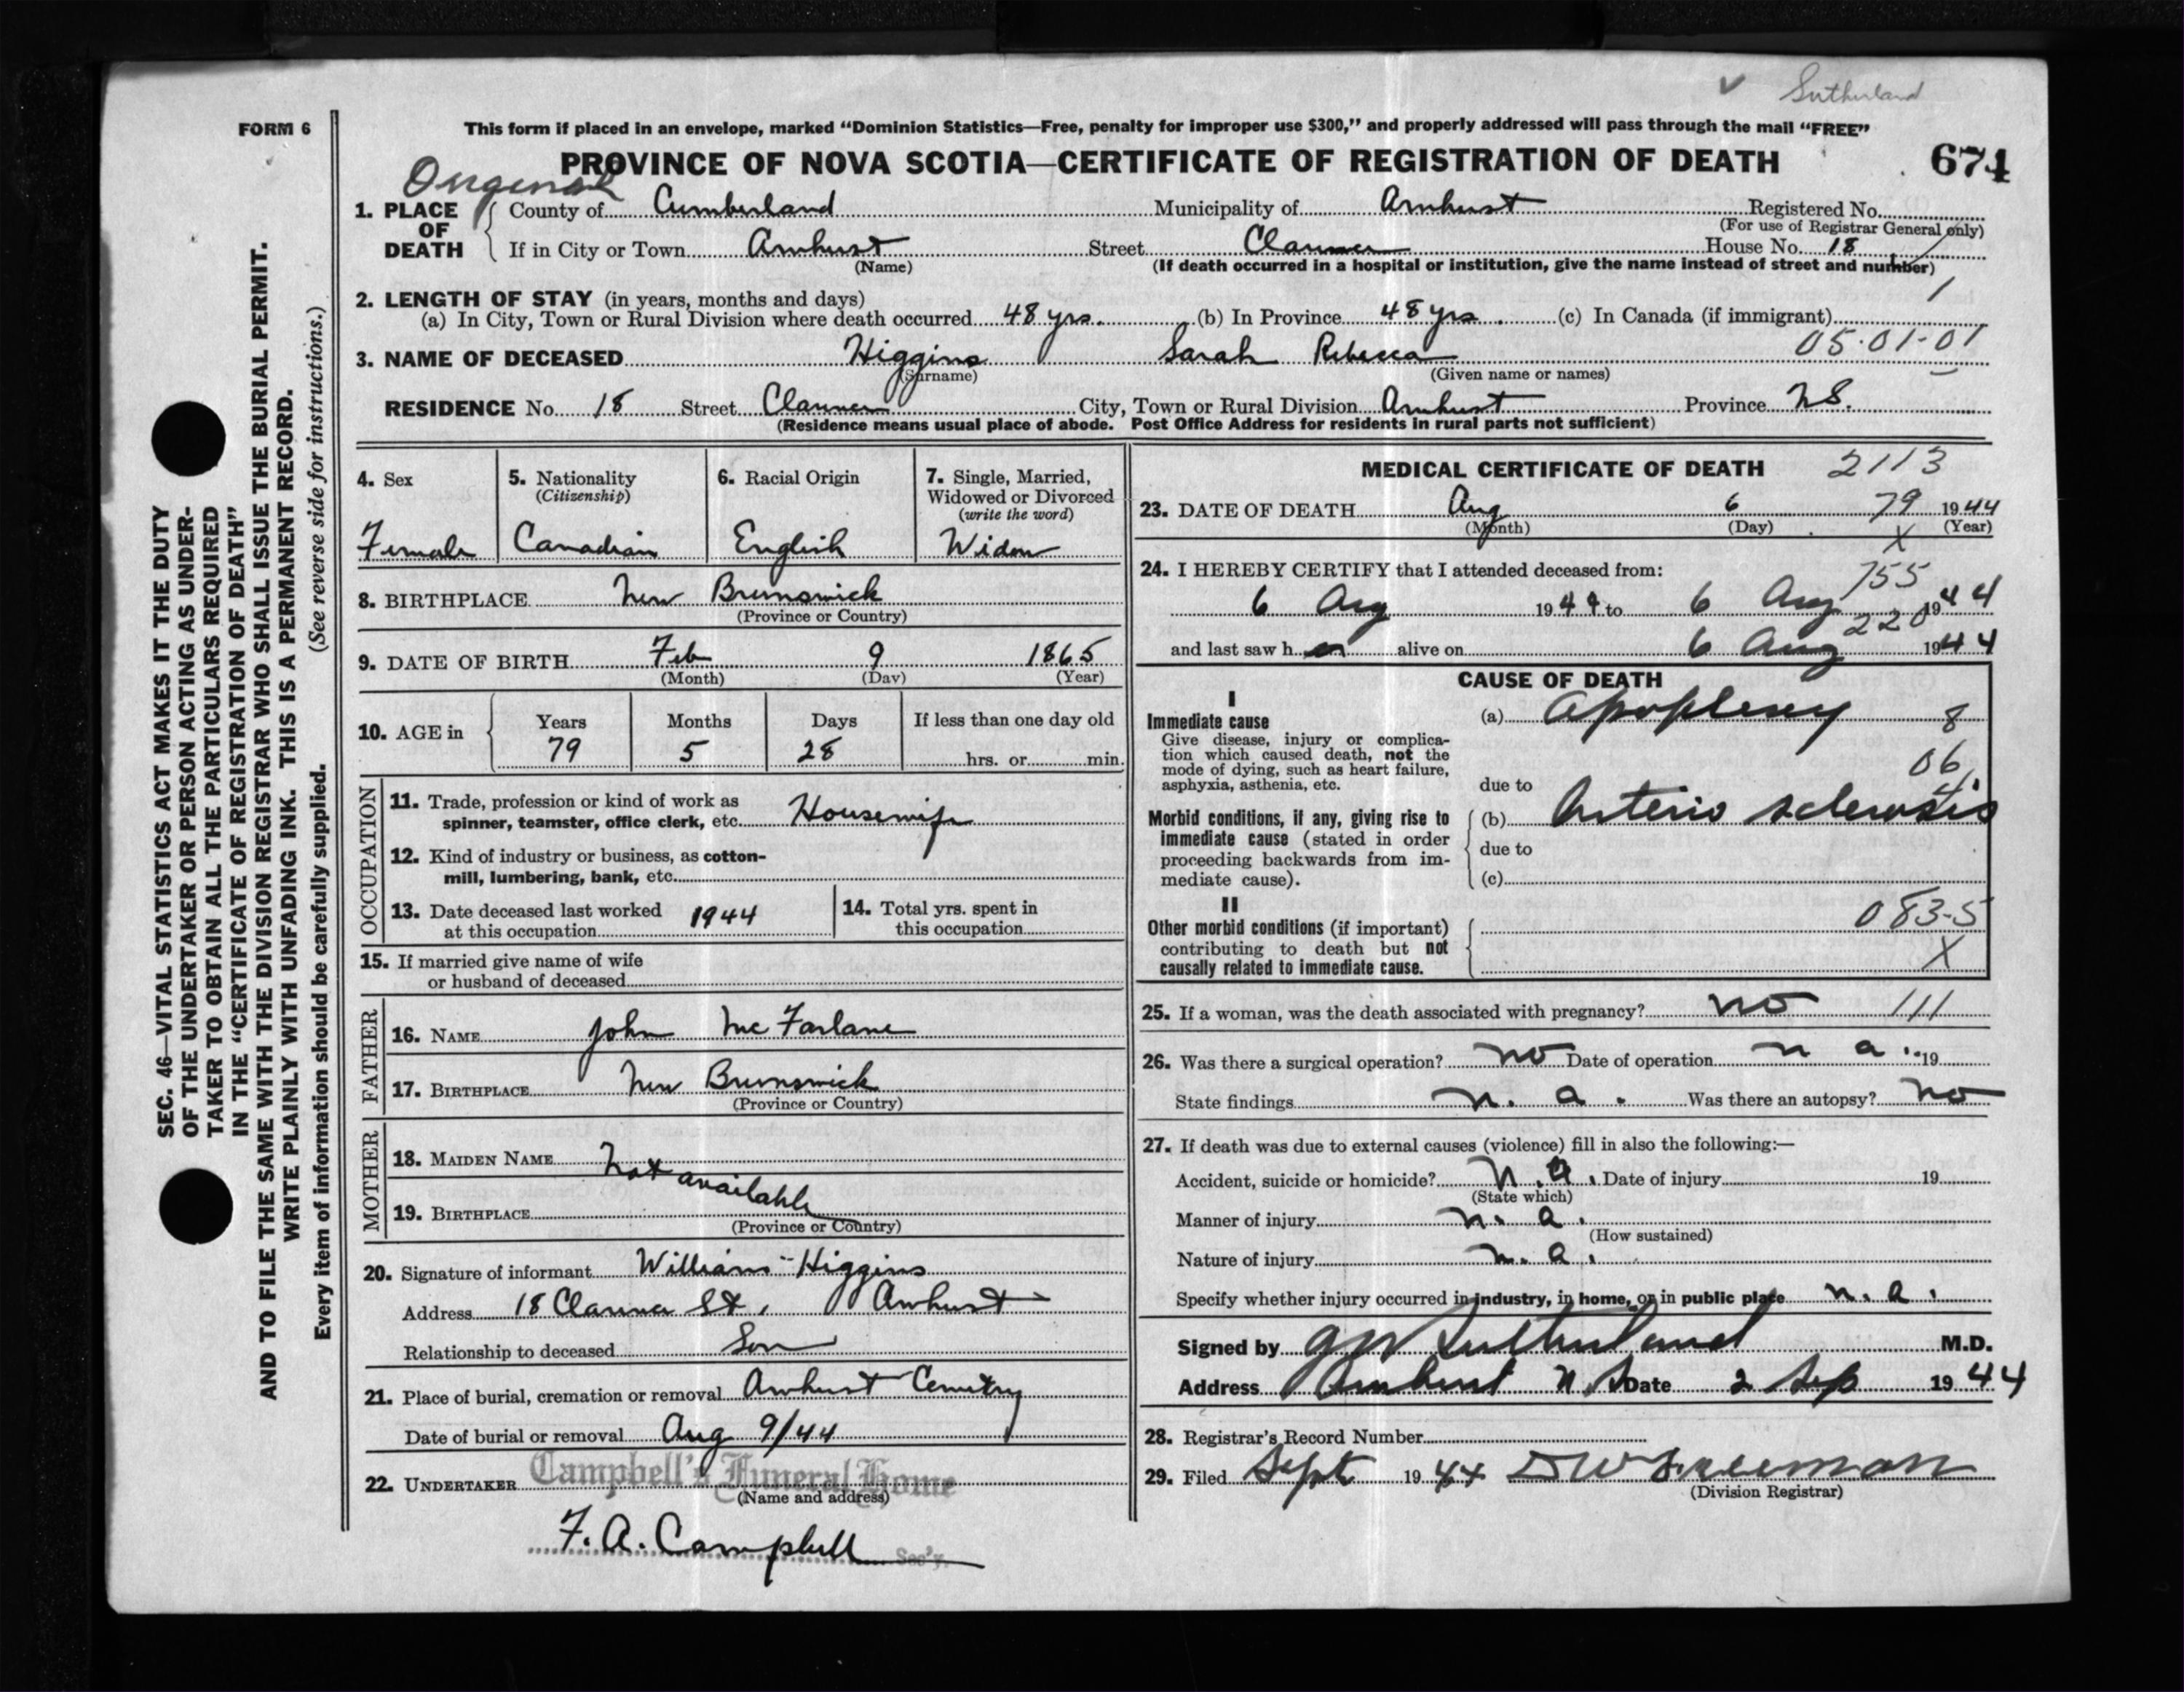 Sutherland
FORM 6
This form if placed in an envelope, marked “Dominion Statistics—Free, penalty for improper use $300,” and properly addressed will pass through the mail “FREE”
PROVINCE OF NOVA SCOTIA—CERTIFICATE OF REGISTRATION OF DEATH
674
Original
1. PLACE OF DEATH
County of Cumberland Municipality of Amherst Registered No.
(For use of Registrar General only)
If in City or Town Amherst Street Clarence House No. 18
(Name) (If death occurred in a hospital or institution, give the name instead of street and number)
1
2. LENGTH OF STAY (in years, months and days)
(a) In City, Town or Rural Division where death occurred 48 yrs. (b) In Province 48 yrs. (c) In Canada (if immigrant)
05-01-01
3. NAME OF DECEASED Higgins Sarah Rebecca
(Surname) (Given name or names)
RESIDENCE No. 18 Street Clarence City, Town or Rural Division Amherst Province N.S.
(Residence means usual place of abode. Post Office Address for residents in rural parts not sufficient)
4. Sex
Female
5. Nationality
(Citizenship)
Canadian
6. Racial Origin
English
7. Single, Married,
Widowed or Divorced
(write the word)
Widow
8. BIRTHPLACE New Brunswick
(Province or Country)
9. DATE OF BIRTH Feb 9 1865
(Month) (Day) (Year)
10. AGE in
Years Months Days If less than one day old
79 5 28 hrs. or min.
OCCUPATION
11. Trade, profession or kind of work as
spinner, teamster, office clerk, etc. Housewife
12. Kind of industry or business, as cotton-
mill, lumbering, bank, etc.
13. Date deceased last worked
at this occupation 1944
14. Total yrs. spent in
this occupation
15. If married give name of wife
or husband of deceased
FATHER
16. NAME John McFarlane
17. BIRTHPLACE New Brunswick
(Province or Country)
MOTHER
18. MAIDEN NAME Not available
19. BIRTHPLACE
(Province or Country)
20. Signature of informant William Higgins
Address 18 Clarence St., Amherst
Relationship to deceased Son
21. Place of burial, cremation or removal Amherst Cemetry
Date of burial or removal Aug 9/44
22. UNDERTAKER Campbell's Funeral Home
(Name and address)
F. A. Campbell Sec'y.
MEDICAL CERTIFICATE OF DEATH 2113
23. DATE OF DEATH Aug 6 79 1944
(Month) (Day) (Year)
X
24. I HEREBY CERTIFY that I attended deceased from:
755
6 Aug 1944 to 6 Aug 1944
220
and last saw her alive on 6 Aug 1944
CAUSE OF DEATH
I
Immediate cause
Give disease, injury or complica-
tion which caused death, not the
mode of dying, such as heart failure,
asphyxia, asthenia, etc.
(a) Apoplexy 8
06
due to
Morbid conditions, if any, giving rise to
immediate cause (stated in order
proceeding backwards from im-
mediate cause).
(b) Arterio sclerosis
due to
(c)
II
Other morbid conditions (if important)
contributing to death but not
causally related to immediate cause.
083-5
X
25. If a woman, was the death associated with pregnancy? no 111
26. Was there a surgical operation? no Date of operation n a. 19
State findings n. a. Was there an autopsy? no
27. If death was due to external causes (violence) fill in also the following:—
Accident, suicide or homicide? n.a. Date of injury 19
(State which)
Manner of injury n. a.
(How sustained)
Nature of injury n. a.
Specify whether injury occurred in industry, in home, or in public place n. a.
Signed by G W Sutherland M.D.
Address Amherst N S Date 2 Sep 1944
28. Registrar's Record Number
29. Filed Sept 1944 D W Freeman
(Division Registrar)
SEC. 46—VITAL STATISTICS ACT MAKES IT THE DUTY
OF THE UNDERTAKER OR PERSON ACTING AS UNDER-
TAKER TO OBTAIN ALL THE PARTICULARS REQUIRED
IN THE “CERTIFICATE OF REGISTRATION OF DEATH”
AND TO FILE THE SAME WITH THE DIVISION REGISTRAR WHO SHALL ISSUE THE BURIAL PERMIT.
WRITE PLAINLY WITH UNFADING INK. THIS IS A PERMANENT RECORD.
Every item of information should be carefully supplied. (See reverse side for instructions.)